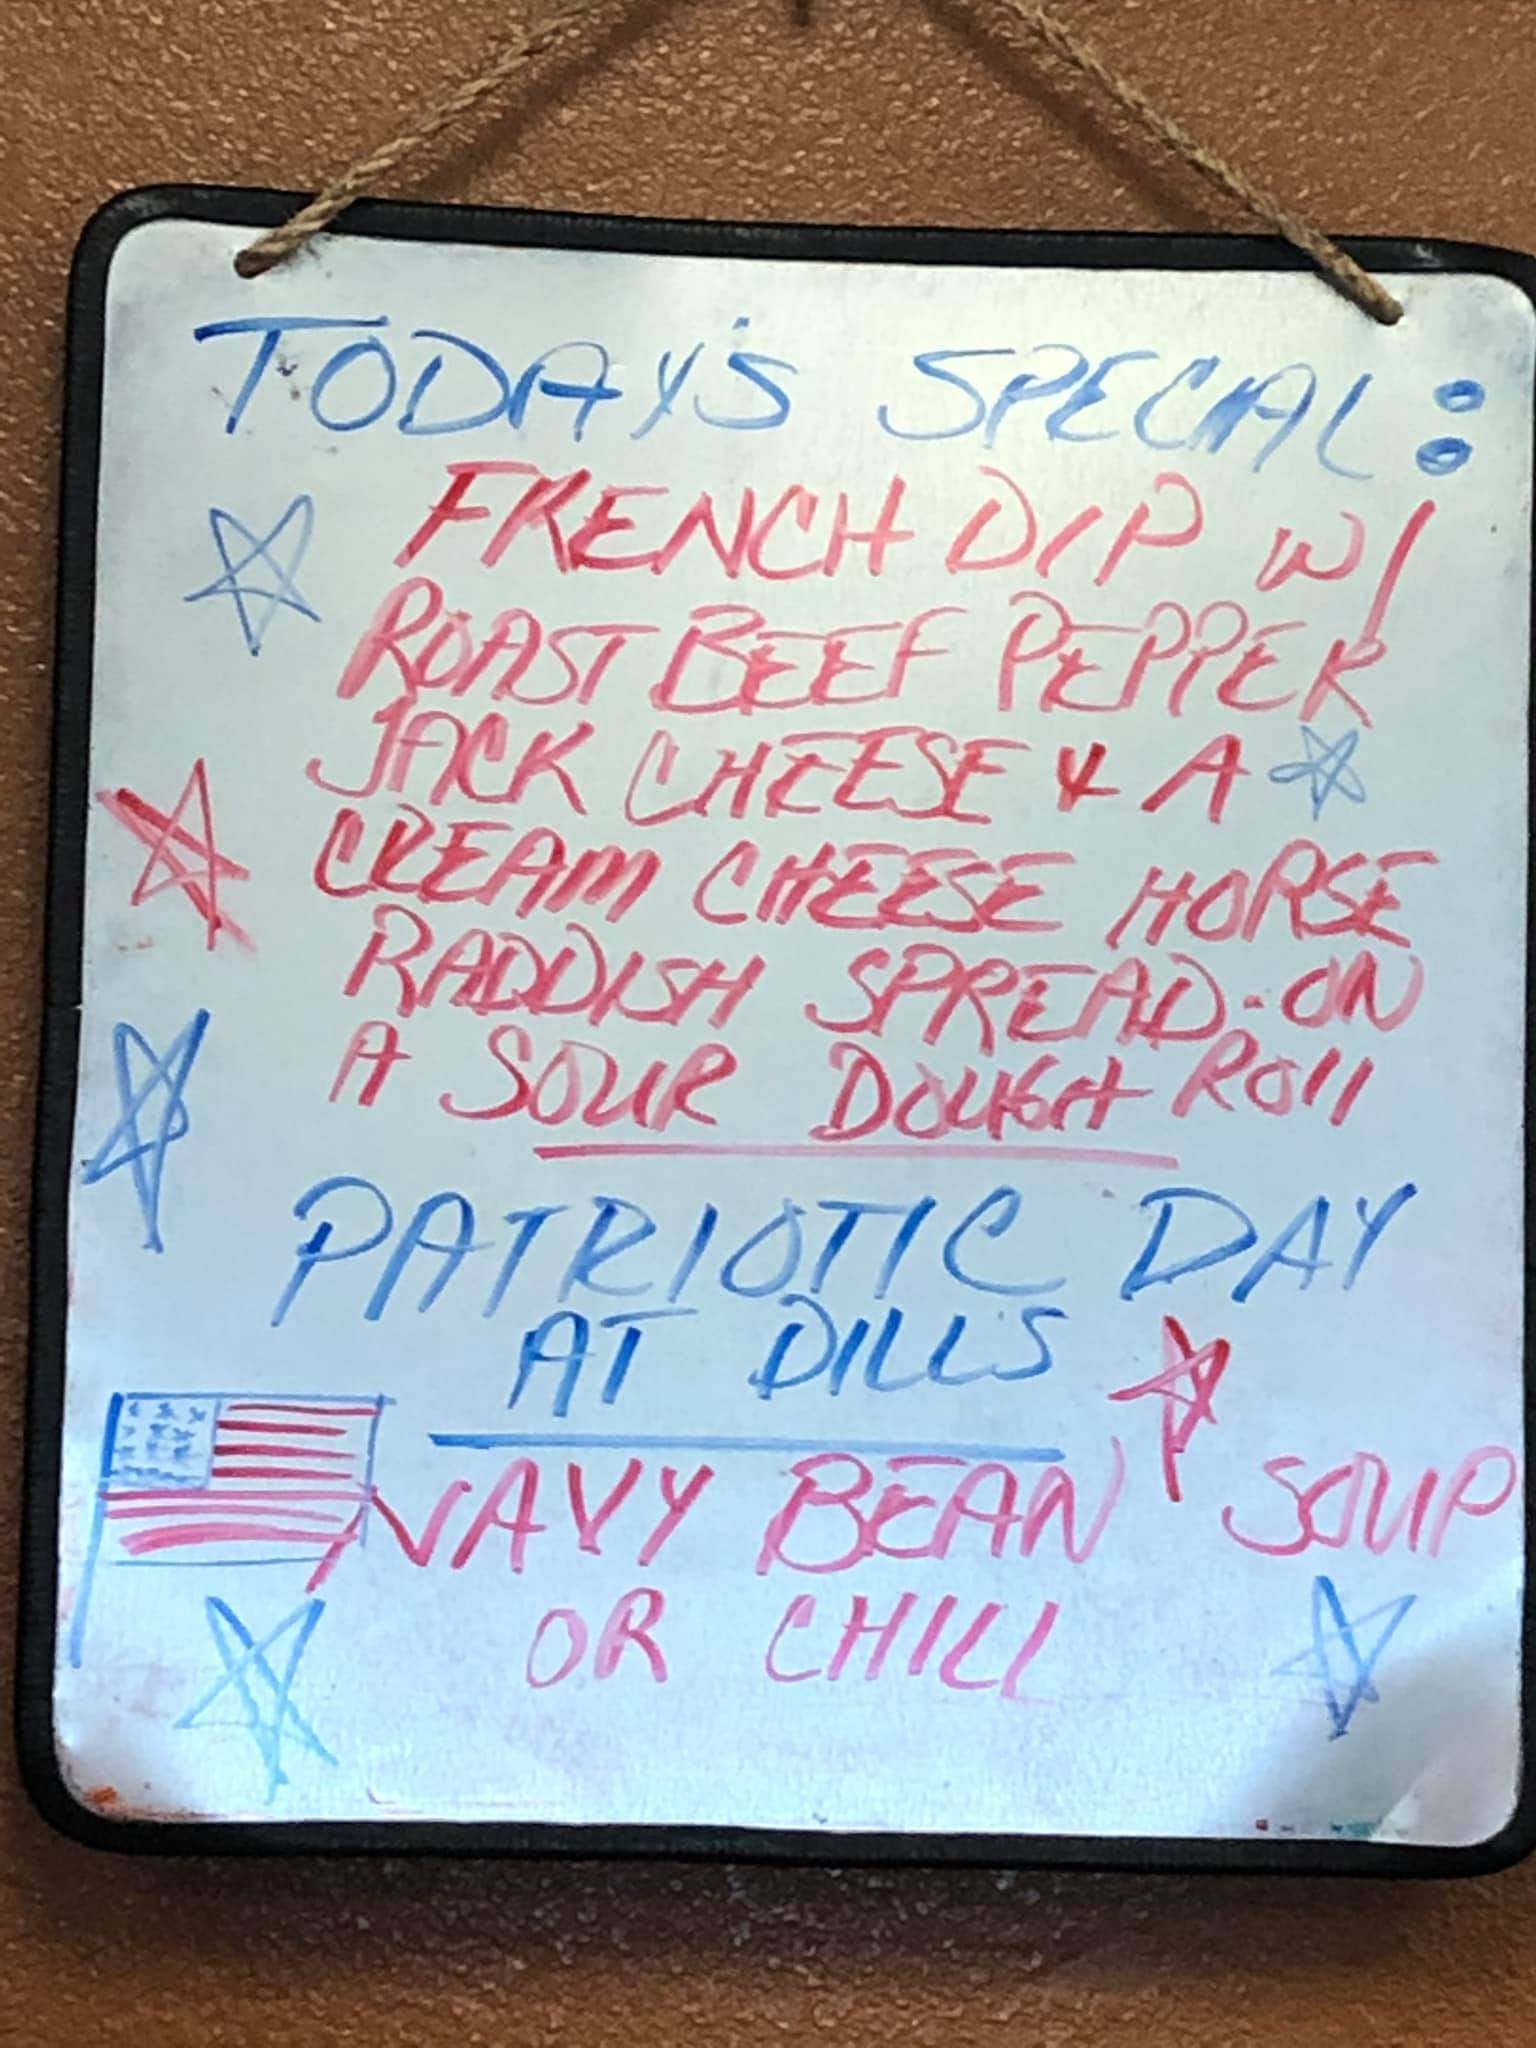 TODAY'S SPECIAL:
FRENCH DIP W/
ROAST BEEF PEPPER
JACK CHEESE & A
CREAM CHEESE HORSE
RADDISH SPREAD-ON
A SOUR DOUGH ROll
PATRIOTIC DAY
AT DILLS
NAVY BEAN SOUP
OR CHILL